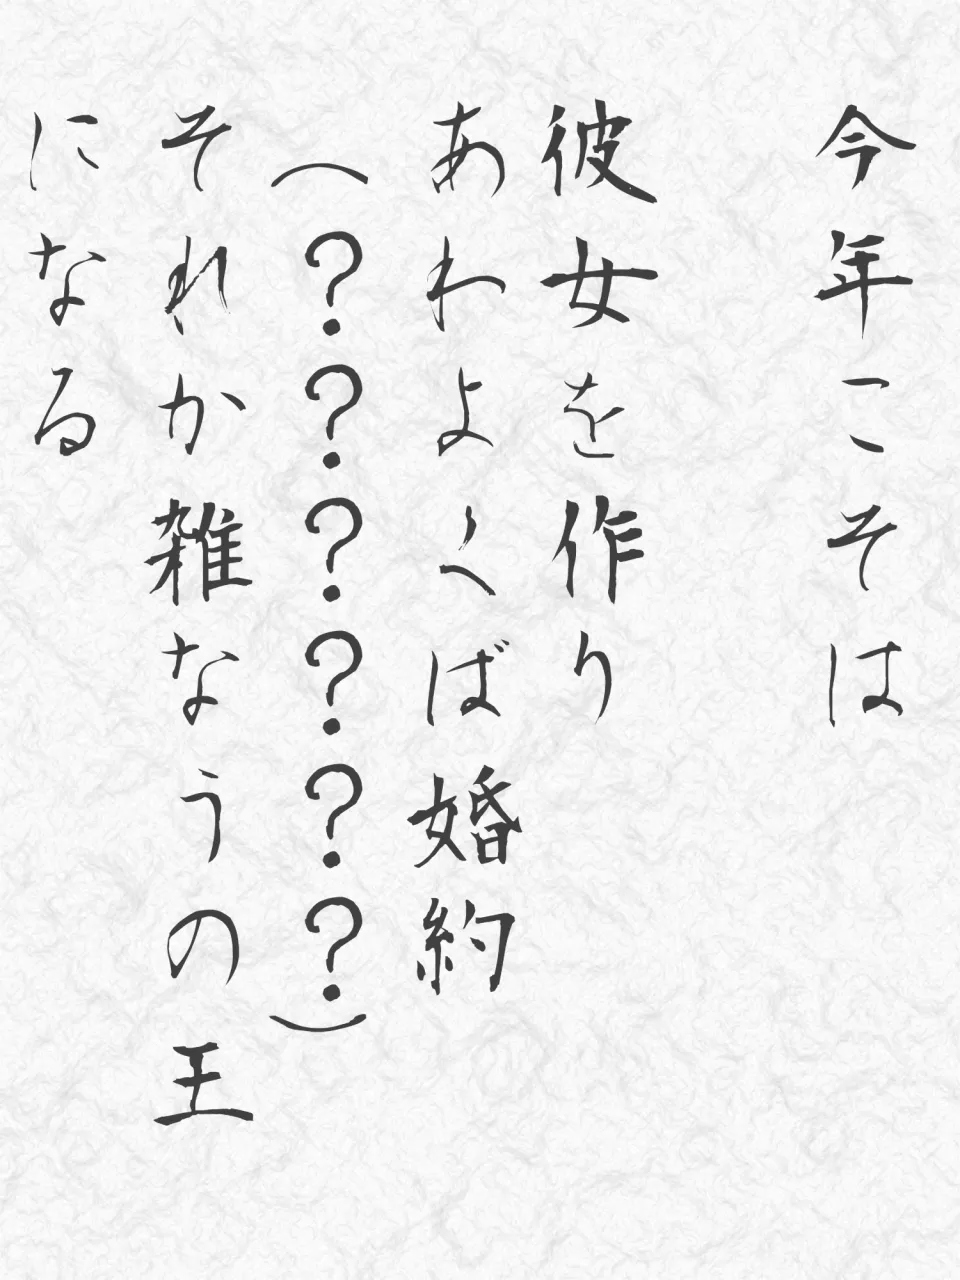 今年こそは
彼女を作り
あわよくば婚約
(??????)
それか雑なうの王
になる